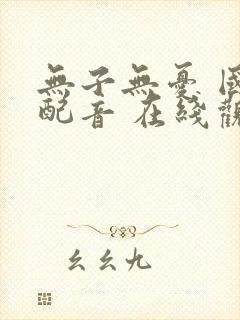 無子無憂 國
配音 在綫觀
幺幺九